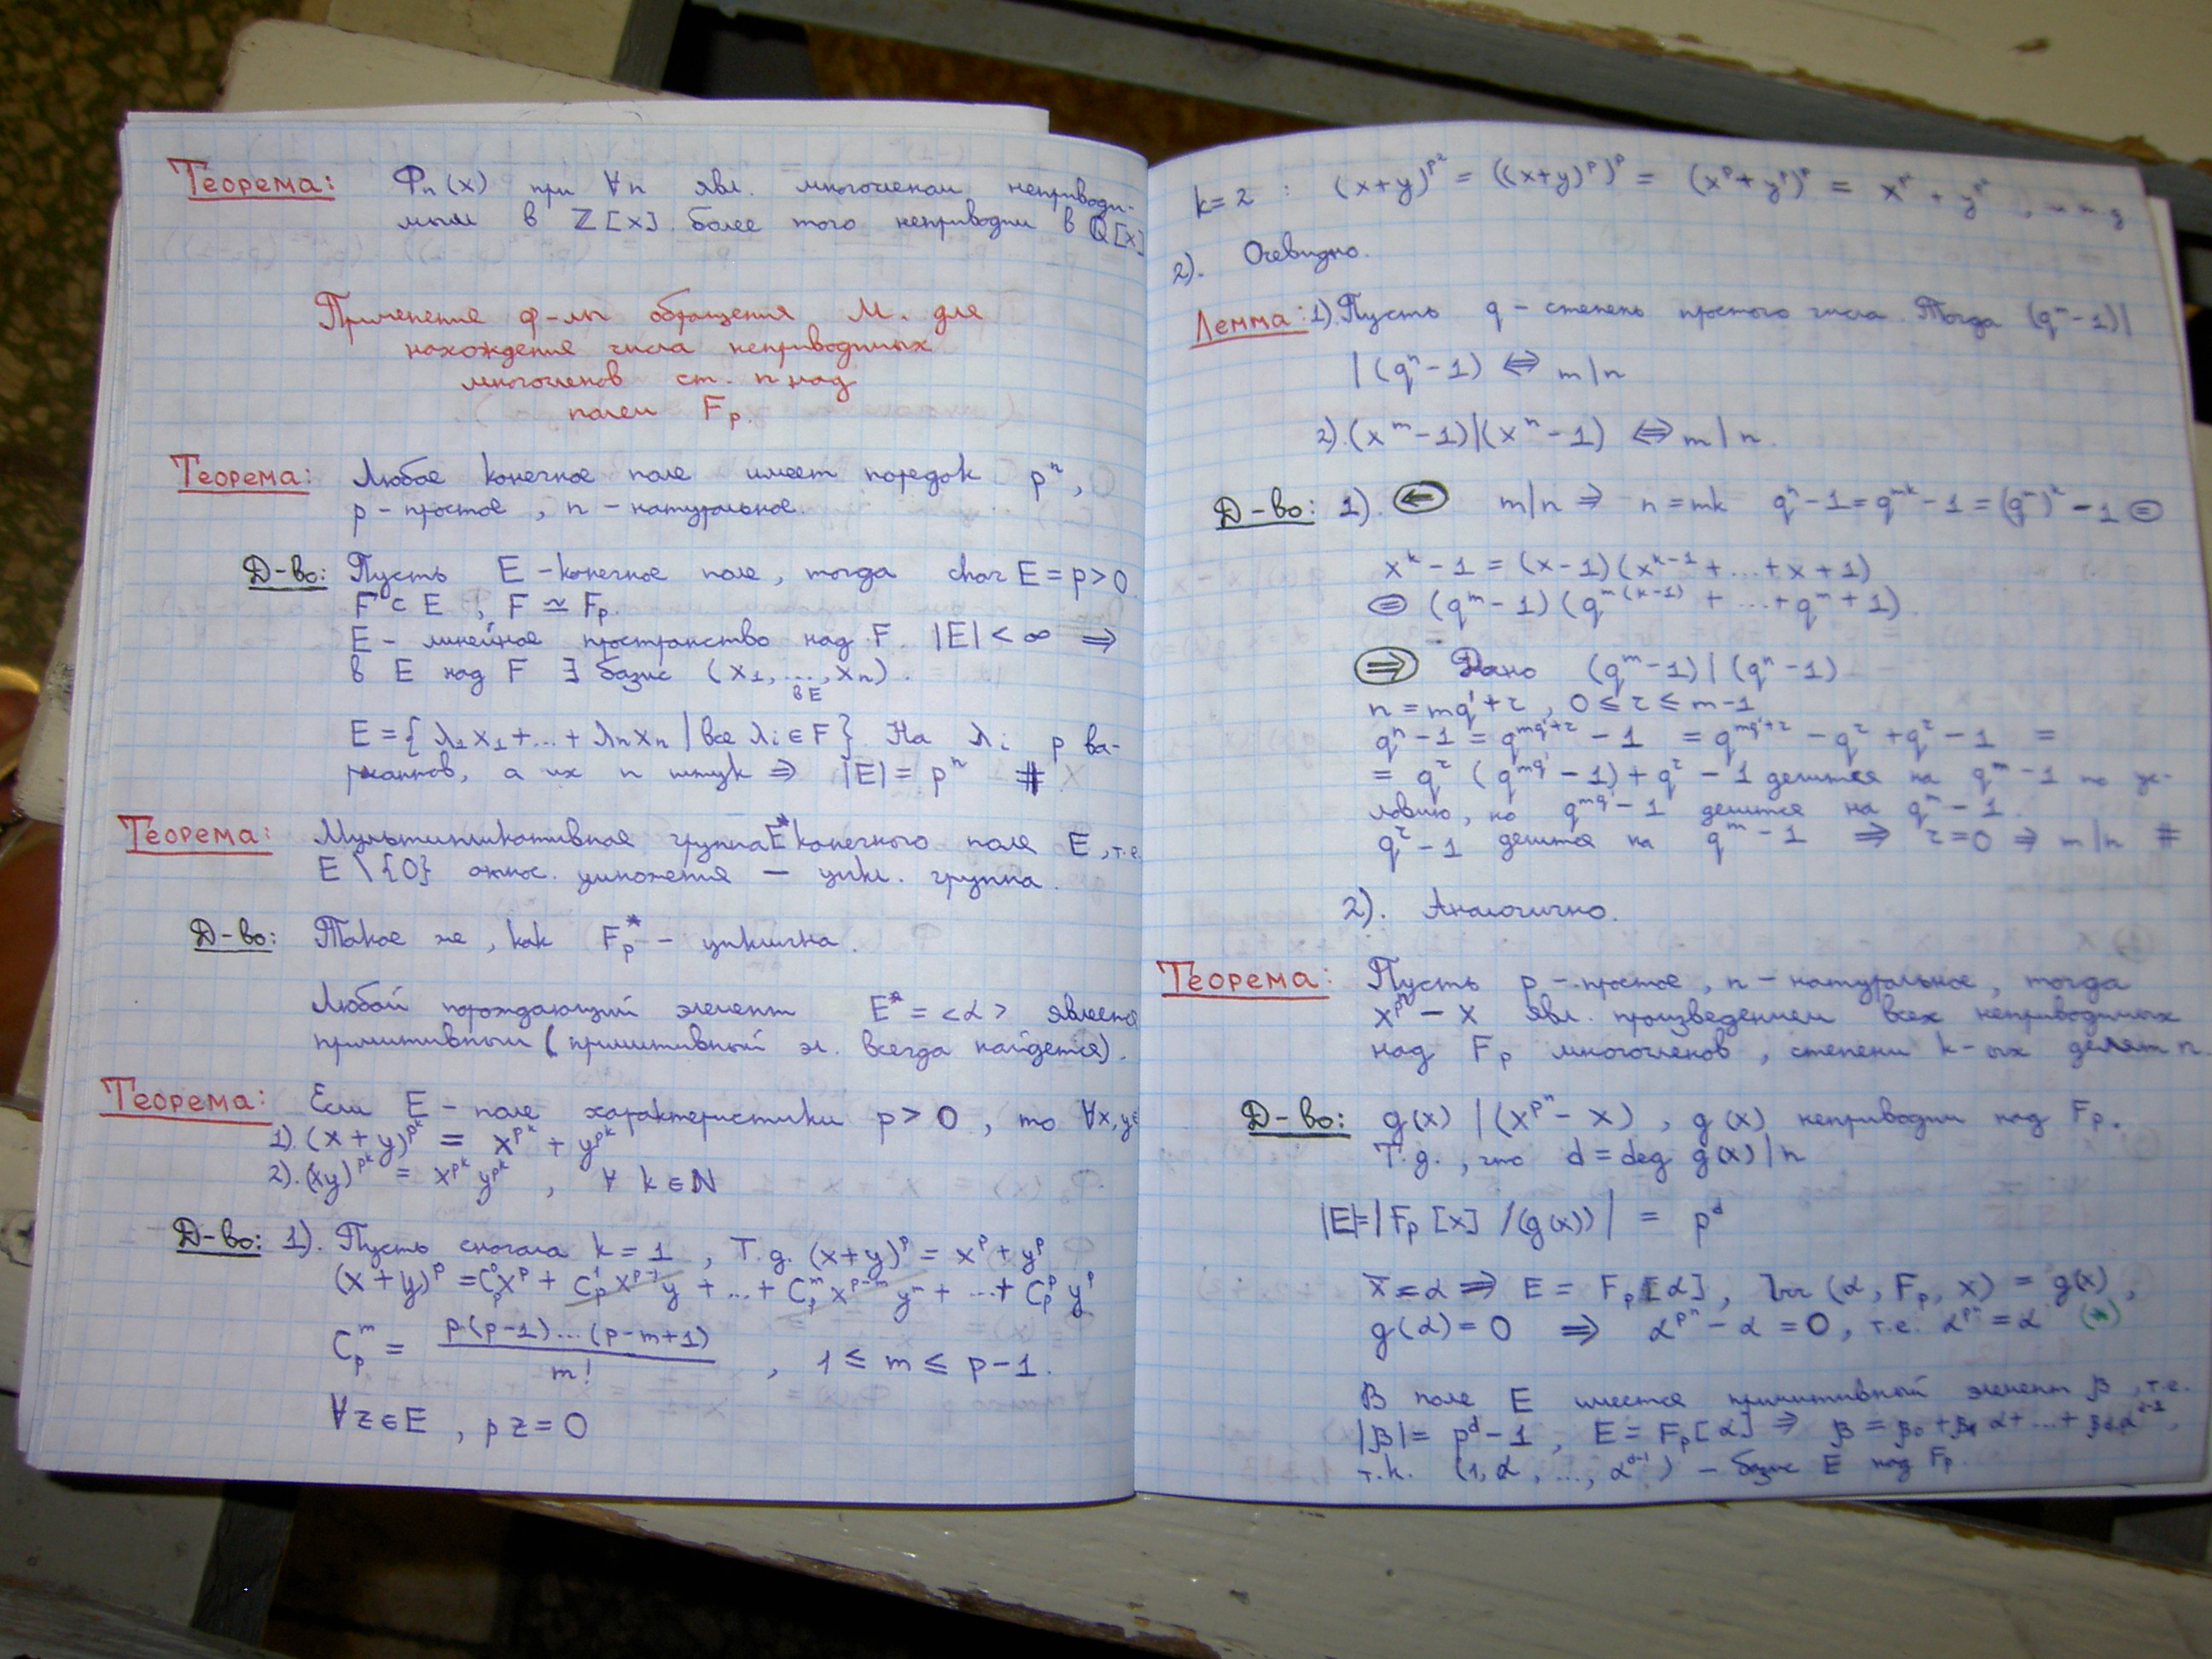 Теорема: Φₙ(x) при ∀n явл. многочленом неприводи-
мым в ℤ[x]. более того неприводим в ℚ[x]
Применение ф-лы обращения М. для
нахождения числа неприводимых
многочленов ст. n над
полем Fₚ.
Теорема: Любое конечное поле имеет порядок pⁿ,
p - простое, n - натуральное.
Д-во: Пусть E - конечное поле, тогда char E = p > 0
F ⊂ E, F ≃ Fₚ.
E - линейное пространство над F. |E| < ∞ ⇒
в E над F ∃ базис (x₁, ..., xₙ).
в E
E = { λ₁x₁ + ... + λₙxₙ | все λᵢ ∈ F }. На λᵢ p ва-
риантов, а их n штук ⇒ |E| = pⁿ #
Теорема: Мультипликативная группа E* конечного поля E, т.е.
E \ {0} относ. умножения — цикл. группа.
Д-во: Такое же, как Fₚ* - циклична.
Любой порождающий элемент E* = <α> является
примитивным (примитивный эл. всегда найдется).
Теорема: Если E - поле характеристики p > 0, то ∀x, y ∈
1). (x + y)^{p^k} = x^{p^k} + y^{p^k}
2). (xy)^{p^k} = x^{p^k} y^{p^k}, ∀ k ∈ ℕ
Д-во: 1). Пусть сначала k = 1, Т.д. (x+y)^p = x^p + y^p
(x + y)^p = C_p^0 x^p + C_p^1 x^{p-1} y + ... + C_p^m x^{p-m} y^m + ... + C_p^p y^p
C_p^m = p(p-1)...(p-m+1) / m!, 1 ≤ m ≤ p-1.
∀z ∈ E, pz = 0
k = 2 : (x+y)^{p^2} = ((x+y)^p)^p = (x^p + y^p)^p = x^{p^2} + y^{p^2}, и т.д
2). Очевидно.
Лемма: 1). Пусть q - степень простого числа. Тогда (q^m - 1) |
| (q^n - 1) ⇔ m | n
2). (x^m - 1) | (x^n - 1) ⇔ m | n.
Д-во: 1). ⇐ m | n ⇒ n = mk q^n - 1 = q^{mk} - 1 = (q^m)^k - 1 =
x^k - 1 = (x - 1)(x^{k-1} + ... + x + 1)
= (q^m - 1)(q^{m(k-1)} + ... + q^m + 1).
⇒ Дано (q^m - 1) | (q^n - 1)
n = mq' + r, 0 ≤ r ≤ m-1
q^n - 1 = q^{mq'+r} - 1 = q^{mq'+r} - q^r + q^r - 1 =
= q^r (q^{mq'} - 1) + q^r - 1 делится на q^m - 1 по ус-
ловию, но q^{mq'} - 1 делится на q^m - 1.
q^r - 1 делится на q^m - 1 ⇒ r = 0 ⇒ m | n #
2). Аналогично.
Теорема: Пусть p - простое, n - натуральное, тогда
x^{p^n} - x явл. произведением всех неприводимых
над Fₚ многочленов, степени k-ых делят n.
Д-во: g(x) | (x^{p^n} - x), g(x) неприводим над Fₚ.
Т.д., что d = deg g(x) | n
|E| = | Fₚ[x] / (g(x)) | = p^d
x̄ = α ⇒ E = Fₚ[α], Irr (α, Fₚ, x) = g(x),
g(α) = 0 ⇒ α^{p^n} - α = 0, т.е. α^{p^n} = α (*)
В поле E имеется примитивный элемент β, т.е.
|β| = p^d - 1, E = Fₚ[α] ⇒ β = β₀ + β₁ α + ... + α^{d-1},
т.к. (1, α, ..., α^{d-1}) - базис E над Fₚ.